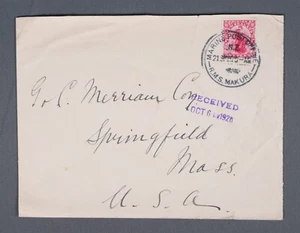 MARINE POST OFFICE
N.Z.
R.M.S. MAKURA
G. & C. Merriam Co.
RECEIVED
OCT 6 1926
Springfield
Mass.
U. S. A.